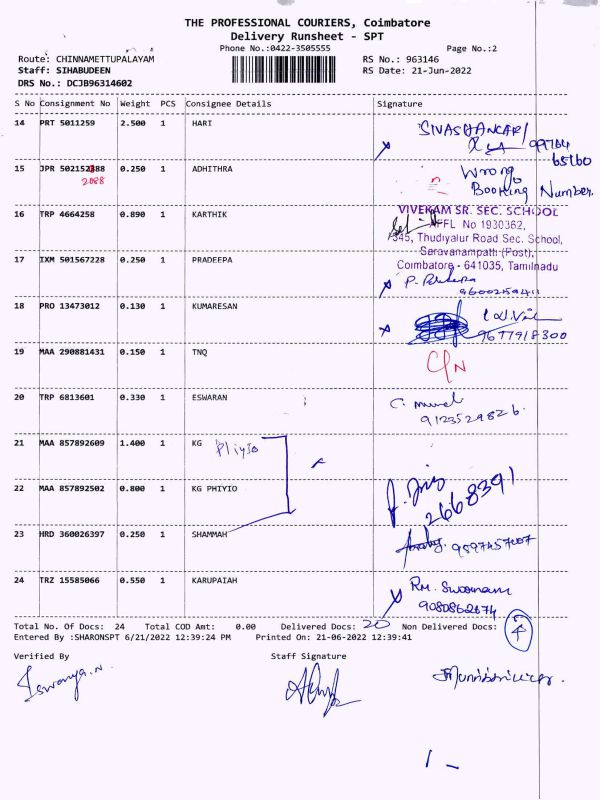 THE PROFESSIONAL COURIERS, Coimbatore
Delivery Runsheet - SPT
Phone No.:0422-3505555 Page No.:2
Route: CHINNAMETTUPALAYAM RS No.: 963146
Staff: SIHABUDEEN RS Date: 21-Jun-2022
DRS No.: DCJB96314602
S No Consignment No Weight PCS Consignee Details Signature
14 PRT 5011259 2.500 1 HARI SIVASHANCAR/
99764
65160
15 JPR 502152388 0.250 1 ADHITHRA Wrong
2088 Booking Number.
16 TRP 4664258 0.890 1 KARTHIK VIVEKAM SR. SEC. SCHOOL
AFFL No 1930362,
345, Thudiyalur Road Sec. School,
17 IXM 501567228 0.250 1 PRADEEPA Saravanampath (Post),
Coimbatore - 641035, Tamilnadu
18 PRO 13473012 0.130 1 KUMARESAN
9677918300
19 MAA 290881431 0.150 1 TNQ C/N
20 TRP 6813601 0.330 1 ESWARAN
9123529826.
21 MAA 857892609 1.400 1 KG Pliyio
22 MAA 857892502 0.800 1 KG PHIYIO
2668391
23 HRD 360026397 0.250 1 SHAMMAH
24 TRZ 15585066 0.550 1 KARUPAIAH RM.
Total No. Of Docs: 24 Total COD Amt: 0.00 Delivered Docs: 20 Non Delivered Docs: 4
Entered By :SHARONSPT 6/21/2022 12:39:24 PM Printed On: 21-06-2022 12:39:41
Verified By Staff Signature
Iswarya.N.